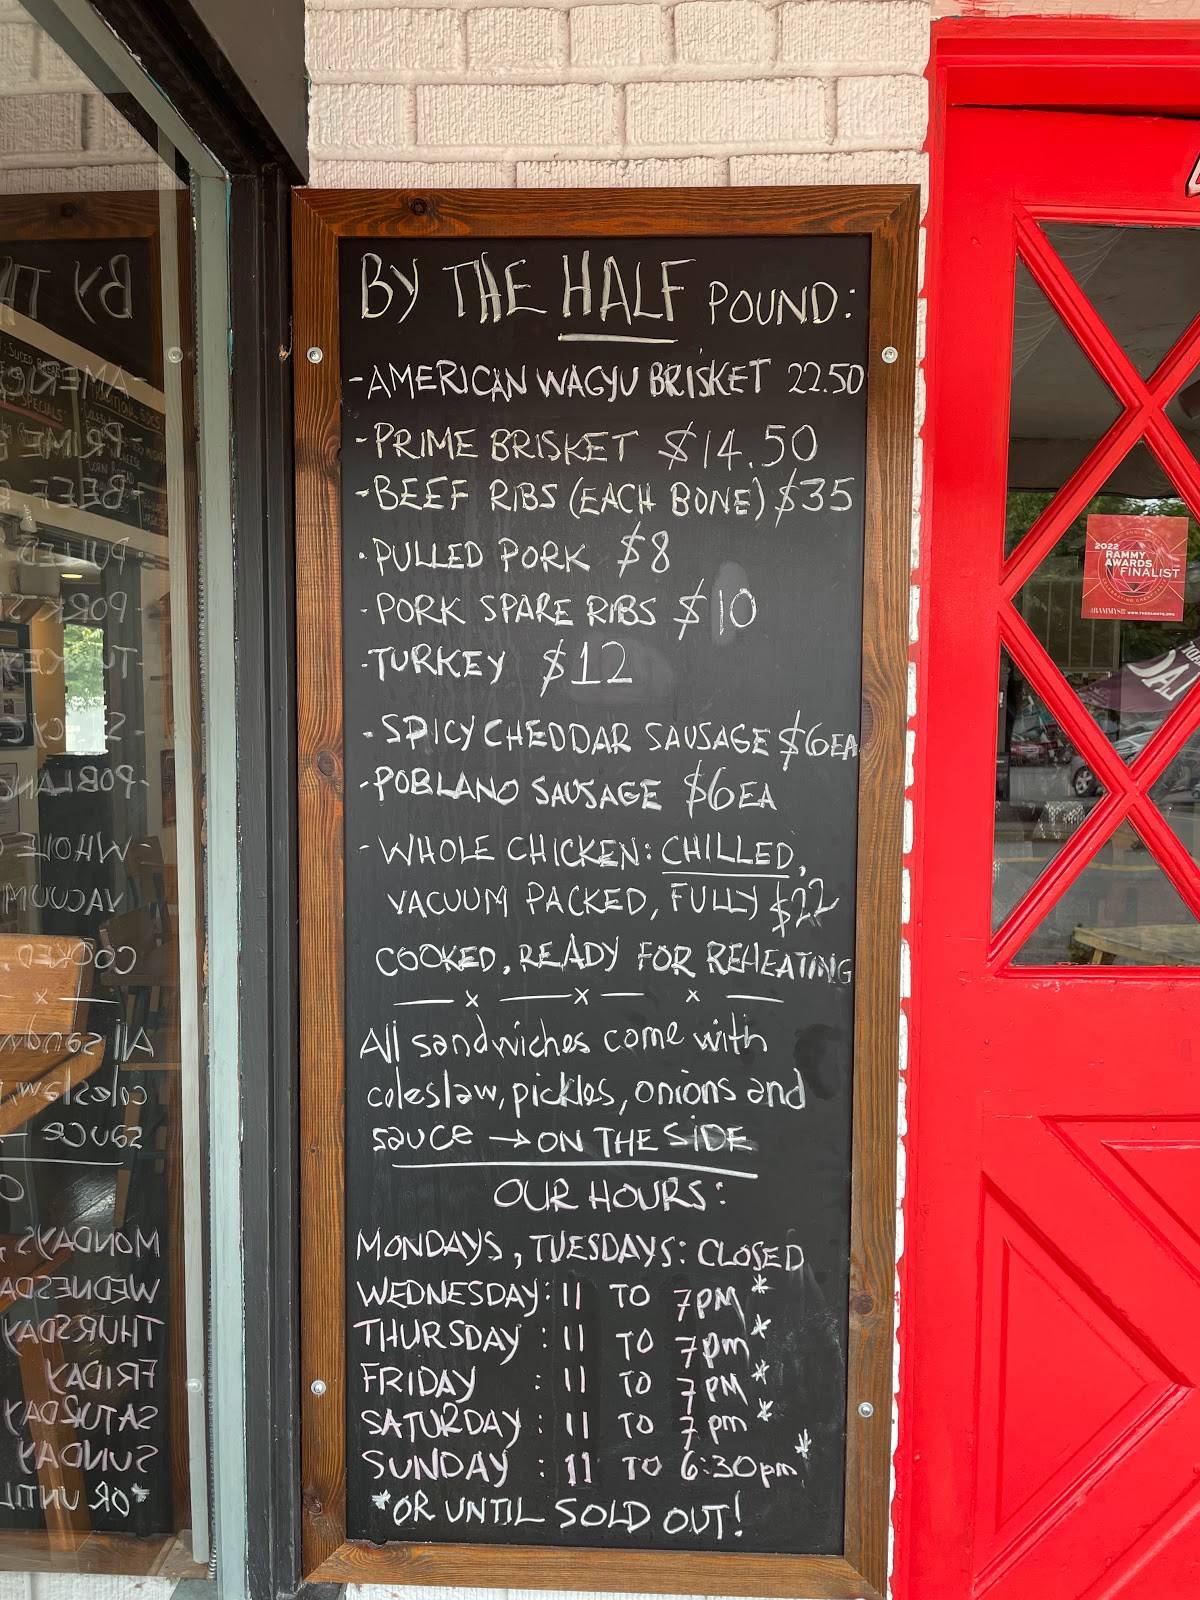 BY THE HALF POUND:
-AMERICAN WAGYU BRISKET 22.50
-PRIME BRISKET $14.50
-BEEF RIBS (EACH BONE) $35
·PULLED PORK $8
·PORK SPARE RIBS $10
-TURKEY $12
-SPICY CHEDDAR SAUSAGE $6EA
-POBLANO SAUSAGE $6EA
-WHOLE CHICKEN: CHILLED,
VACUUM PACKED, FULLY $22
COOKED, READY FOR REHEATING
— x — x — x —
All sandwiches come with
coleslaw, pickles, onions and
sauce → ON THE SIDE
OUR HOURS:
MONDAYS, TUESDAYS: CLOSED
WEDNESDAY: 11 TO 7PM*
THURSDAY : 11 TO 7pm*
FRIDAY : 11 TO 7PM*
SATURDAY : 11 TO 7pm*
SUNDAY : 11 TO 6:30pm*
*OR UNTIL SOLD OUT!
2022
RAMMY
AWARDS
FINALIST